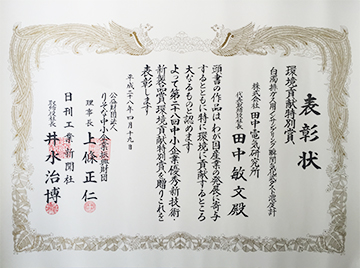 表彰状
環境貢献特別賞
株式会社 田中電気研究所
代表取締役社長 田中敏文殿
頭書の作品はわが国産業の発展に寄与
するとともに特に環境に貢献するところ
大なるものと認めます
よって第二八回中小企業優秀新技術
新製品賞環境貢献特別賞を贈りこれを
表彰します
平成二八年四月十九日
公益財団法人
りそな中小企業振興財団
理事長 上條正仁
日刊工業新聞社
取締役社長 井水治博